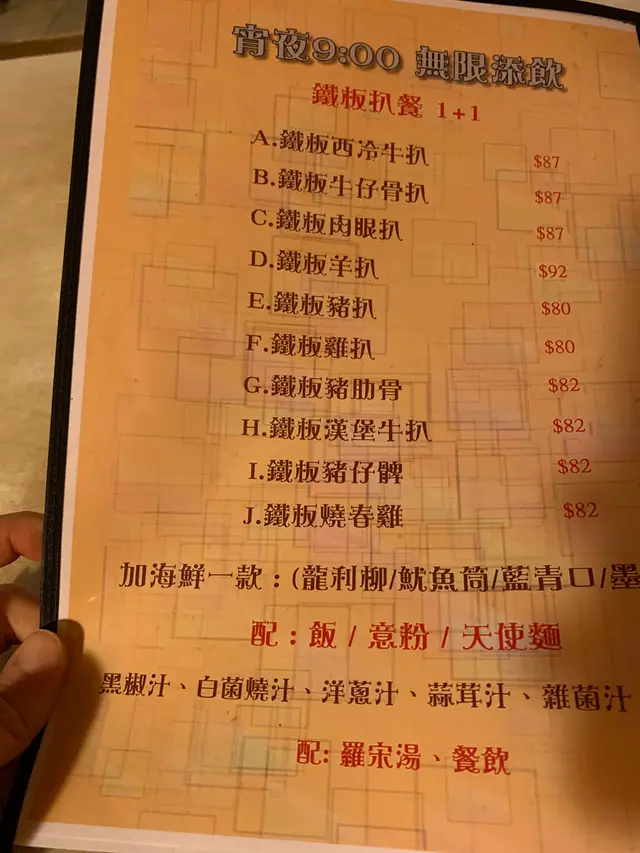 宵夜9:00 無限添飲
鐵板扒餐 1+1
A.鐵板西冷牛扒 $87
B.鐵板牛仔骨扒 $87
C.鐵板肉眼扒 $87
D.鐵板羊扒 $92
E.鐵板豬扒 $80
F.鐵板雞扒 $80
G.鐵板豬肋骨 $82
H.鐵板漢堡牛扒 $82
I.鐵板豬仔髀 $82
J.鐵板燒春雞 $82
加海鮮一款：(龍利柳/魷魚筒/藍青口/墨
配：飯 / 意粉 / 天使麵
黑椒汁、白菌燒汁、洋蔥汁、蒜茸汁、雜菌汁
配: 羅宋湯、餐飲